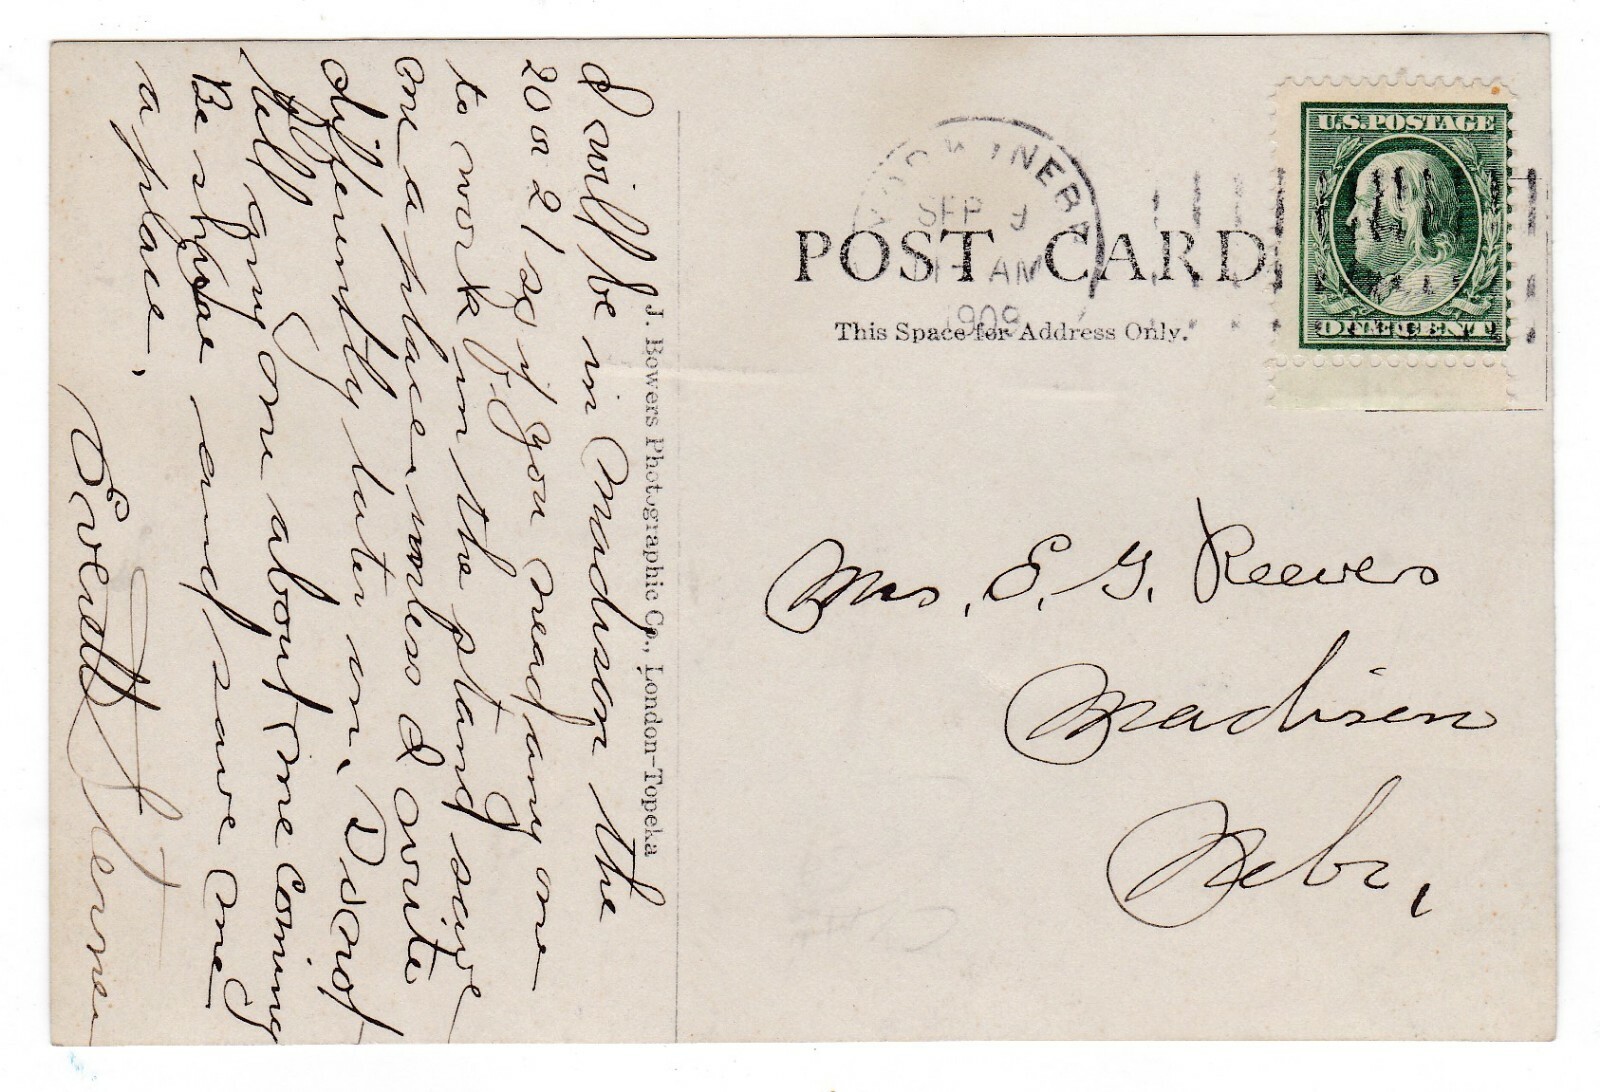 I will be in Madison the
20 or 21 so if you nead any one
to work in the stand save
me a place unless I write
differently later on. Do not
tell any one about me coming
Be shure and save me
a place.
Everett
J. Bowers Photographic Co., London-Topeka
SEP 9
AM
1909
POST CARD
This Space for Address Only.
U.S. POSTAGE
ONE CENT
Mrs. E. G. Reevers
Madison
Nebr.